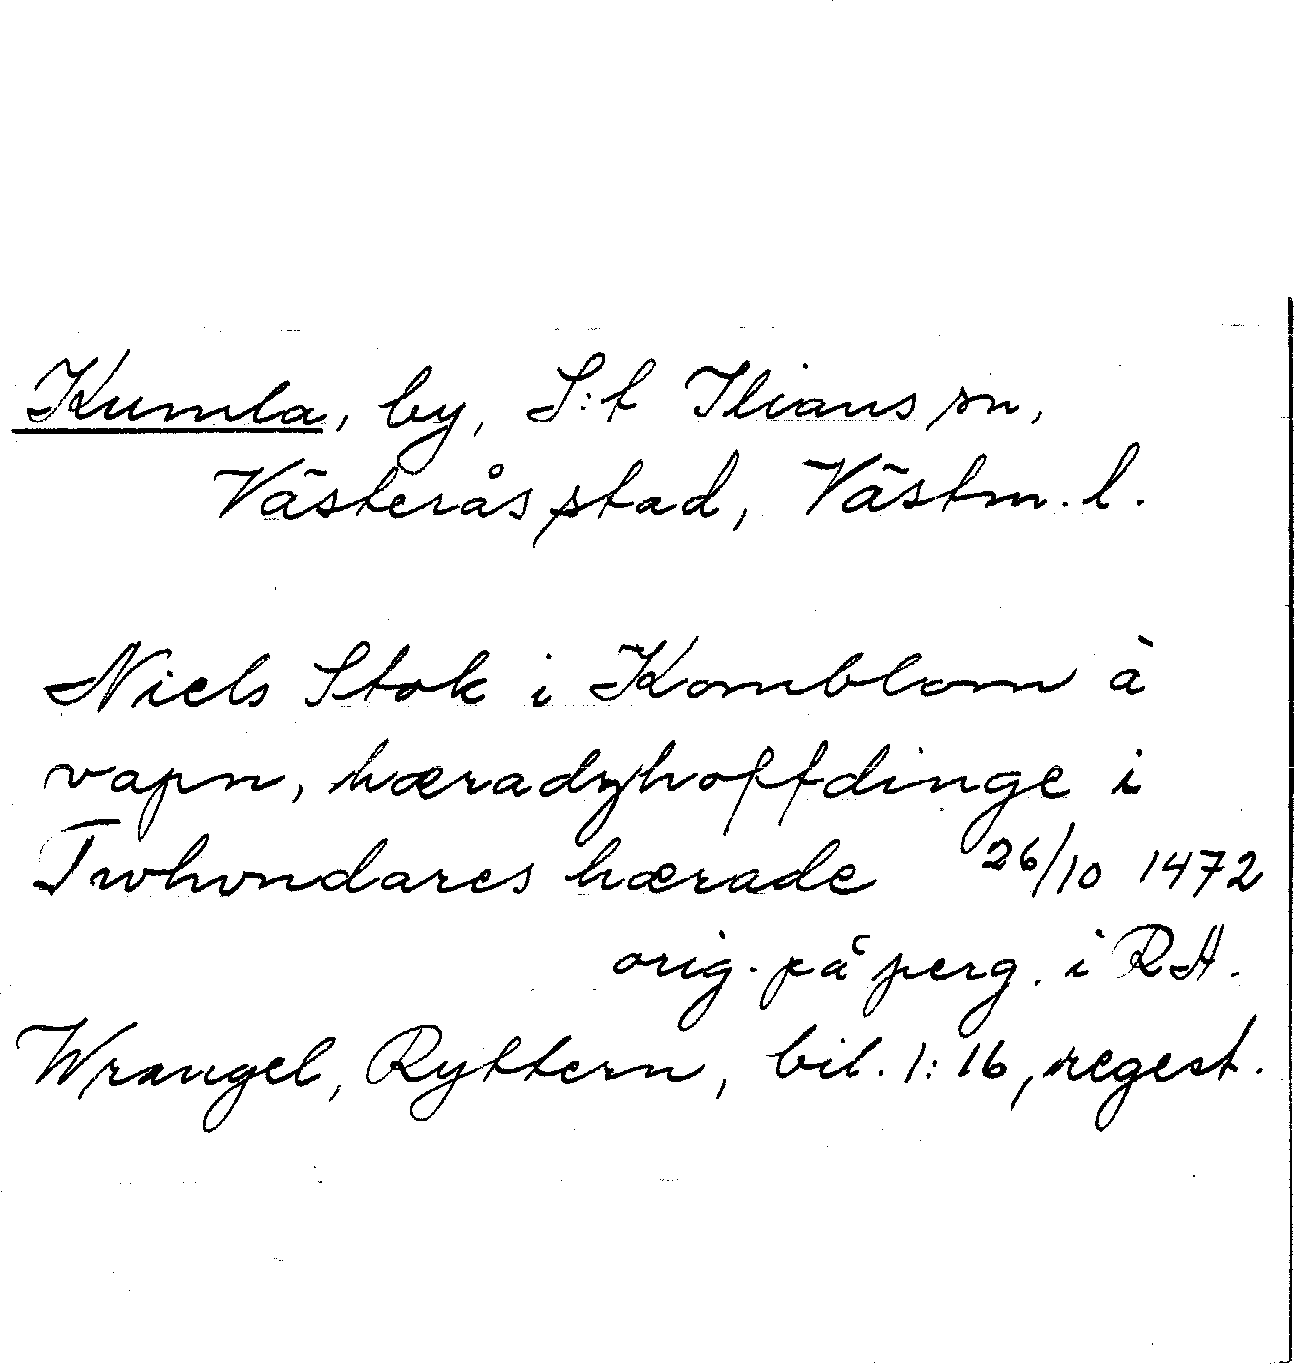 Kumla, by, S:t Ilians sn,
Västerås stad, Västm. l.
Niels Stok i Komblom à
vapn, hæradzhoffdinge i
Twhvndares hærade 26/10 1472
orig. på perg. i RA.
Wrangel, Ryttern, bil. 1:16, regest.